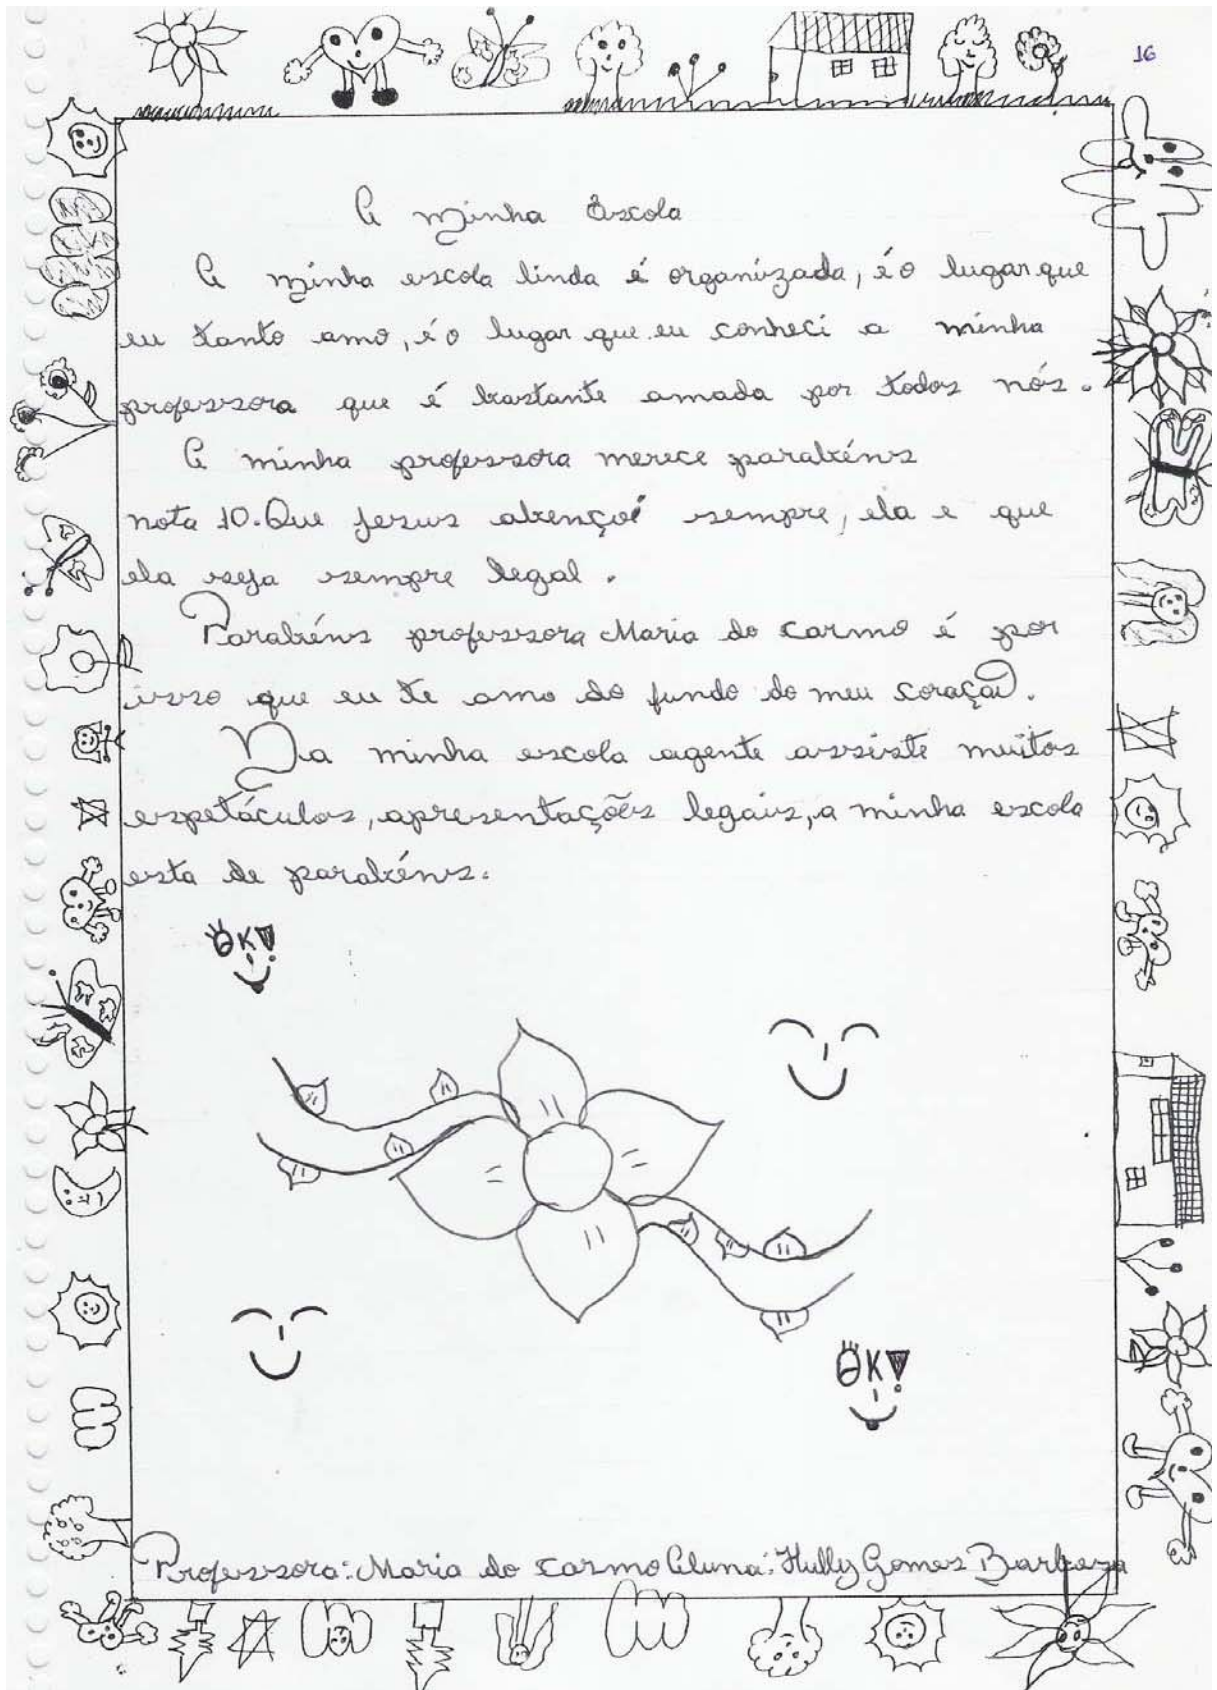 16
A minha Escola
A minha escola linda é organizada, é o lugar que
eu tanto amo, é o lugar que eu conheci a minha
professora que é bastante amada por todos nós.
A minha professora merece parabéns
nota 10. Que Jesus abençoé sempre, ela e que
ela seja sempre legal.
Parabéns professora Maria do Carmo é por
isso que eu te amo do fundo do meu coração.
Na minha escola agente assiste muitos
espetáculos, apresentações legais, a minha escola
esta de parabéns.
OK!
OK!
Professora: Maria do Carmo Aluna: Hully Gomes Barbosa